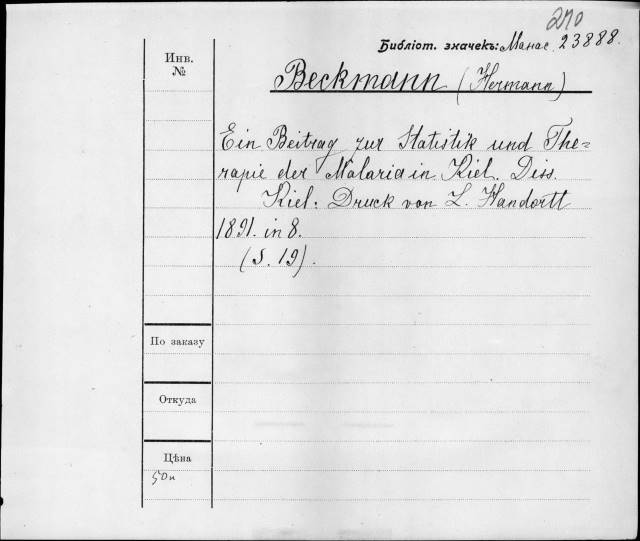 270
Библіот. значекъ: Манас. 23888.
Инв.
№
Beckmann (Hermann)
Ein Beitrag zur Statistik und The=
rapie der Malaria in Kiel. Diss.
Kiel. Druck von L. Handorff
1891. in 8.
(S. 19).
По заказу
Откуда
Цѣна
50 п